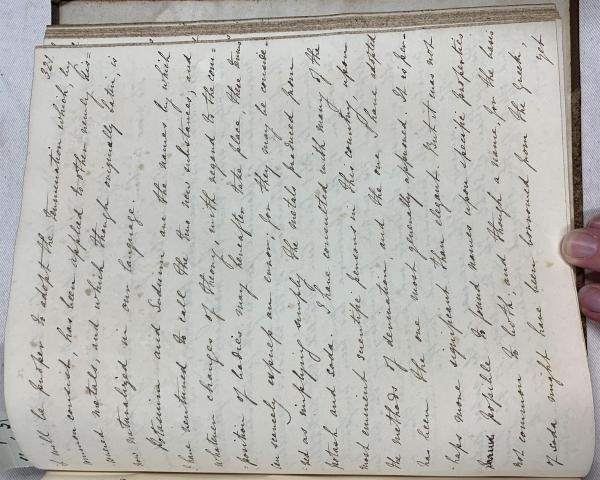 321
it will be proper to adopt the termination which, by
common consent, has been applied to other newly dis=
covered metals, and which though originally Latin, is
now naturalized in our language.
Potasium and Sodium are the names by which
I have ventured to call the two new substances, and
whatever changes of theory, with regard to the com=
position of bodies may hereafter take place, these terms
can scarcely express an error, for they may be conside=
red as implying simply the metals produced from
potash and soda. I have consulted with many of the
most eminent scientific persons in this country, upon
the methods of derivation, and the one I have adopted
has been the one most generally approved. It is per=
haps more significant than elegant. But it was not
possible to found names upon specific properties
not common to both, and though a name for the basis
of soda might have been borrowed from the Greek,
yet